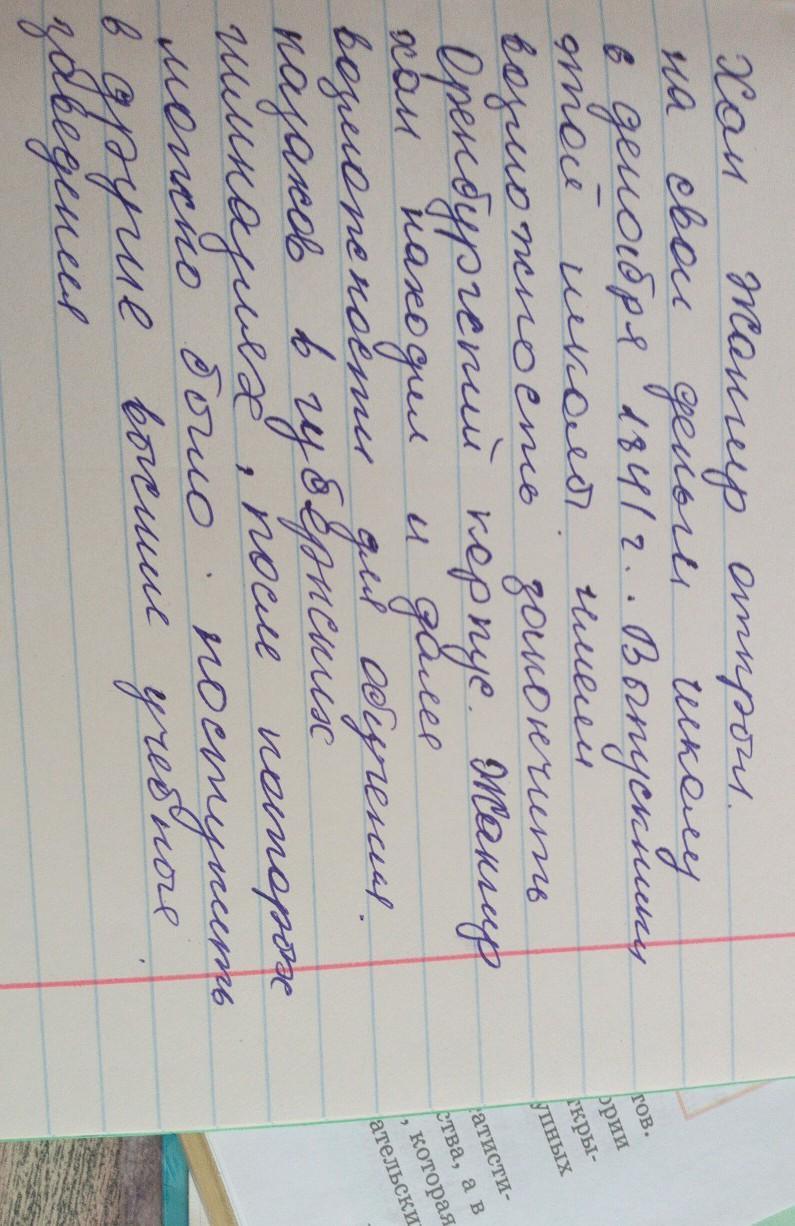 Хан Жангир открыл
на свои деньги школу
в декабря 1841 г.. Выпускники
этой школы имели
возможность закончить
Оренбургский корпус. Жангир
хан находил и далее
возможности для обучения
казахов в губернских
гимназиях, после которых
можно было поступить
в другие высшие учебные
заведения
тов.
ории
ткры-
упных
атисти-
ства, а в
, которая
ательски